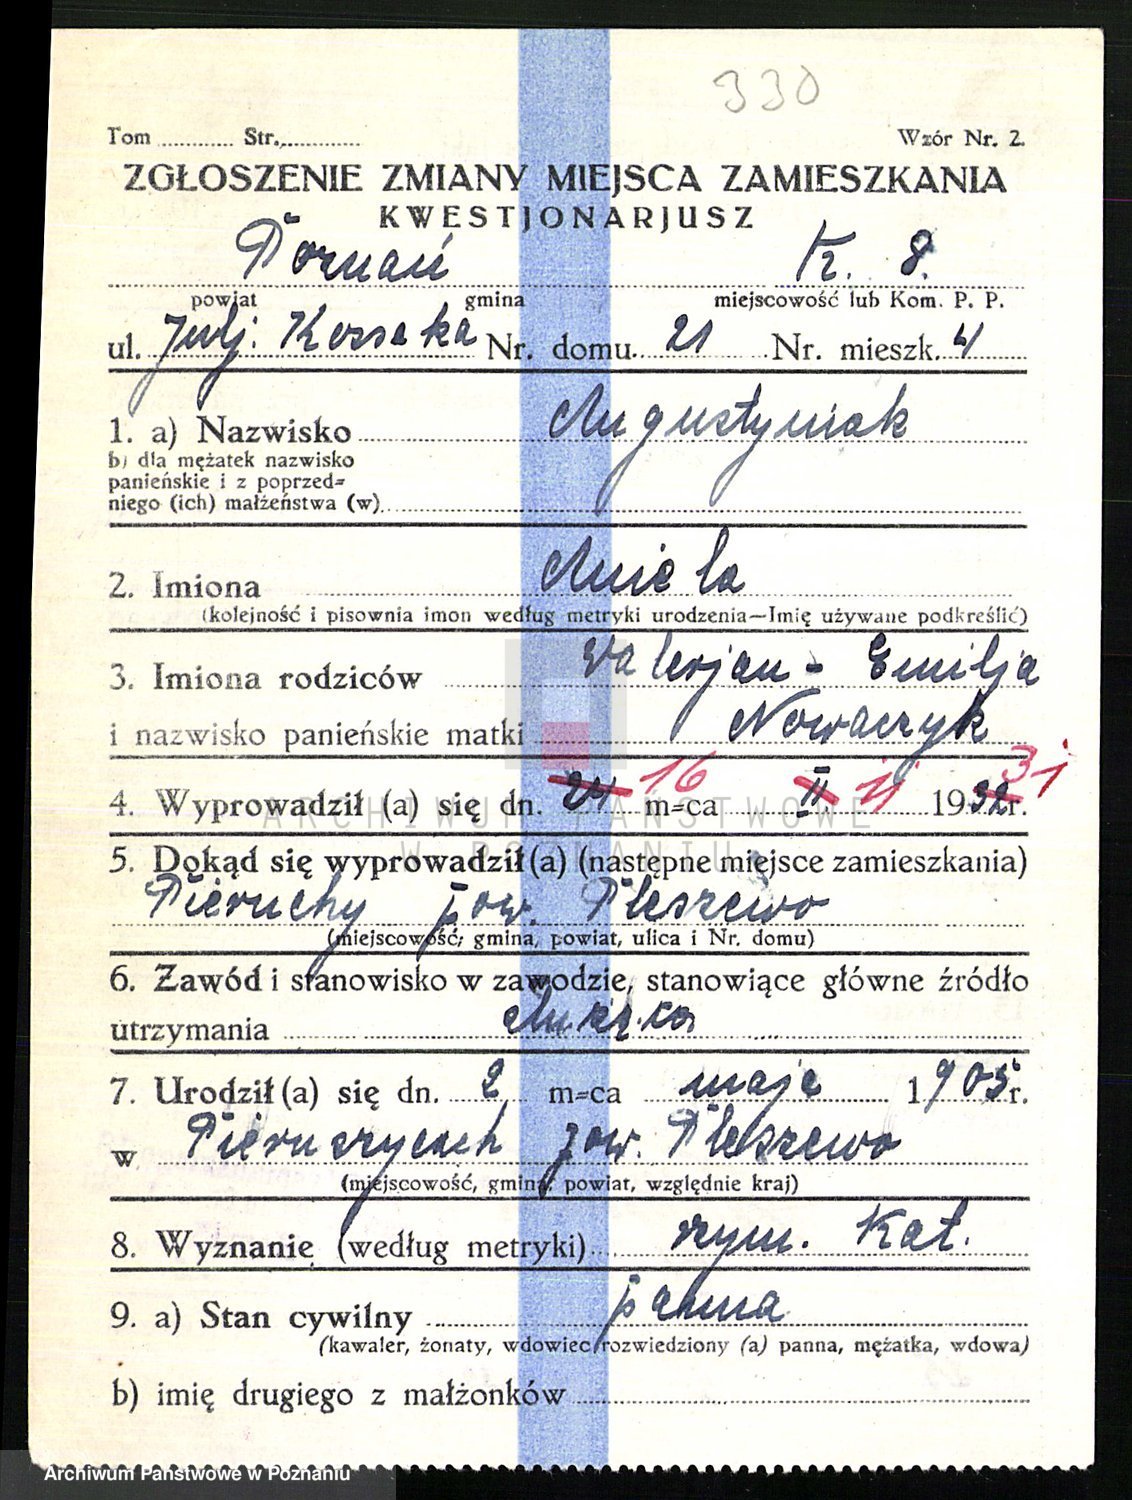 330
Tom ............ Str. ............ Wzór Nr. 2.
ZGŁOSZENIE ZMIANY MIEJSCA ZAMIESZKANIA
KWESTJONARJUSZ
Poznań K. 8.
powiat gmina miejscowość lub Kom. P. P.
ul. Julj. Kossaka Nr. domu 21 Nr. mieszk. 4
1. a) Nazwisko Augustyniak
b) dla mężatek nazwisko
panieńskie i z poprzed=
niego (ich) małżeństwa (w)
2. Imiona Aniela
(kolejność i pisownia imon według metryki urodzenia—Imię używane podkreślić)
3. Imiona rodziców Walerjan - Emilja
i nazwisko panieńskie matki Nowaczyk
4. Wyprowadził (a) się dn. 16 m=ca II 11 1932 31 r.
ARCHIWUM PAŃSTWOWE
W POZNANIU
5. Dokąd się wyprowadził(a) (następne miejsce zamieszkania)
Pieruchy pow. Pleszewo
(miejscowość, gmina, powiat, ulica i Nr. domu)
6. Zawód i stanowisko w zawodzie, stanowiące główne źródło
utrzymania
7. Urodził (a) się dn. 2 m=ca maja 1905 r.
w Pieruszycach pow. Pleszewo
(miejscowość, gmina, powiat, względnie kraj)
8. Wyznanie (według metryki) rzym. Kat.
9. a) Stan cywilny panna
(kawaler, żonaty, wdowiec rozwiedziony (a) panna, mężatka, wdowa)
b) imię drugiego z małżonków
Archiwum Państwowe w Poznaniu